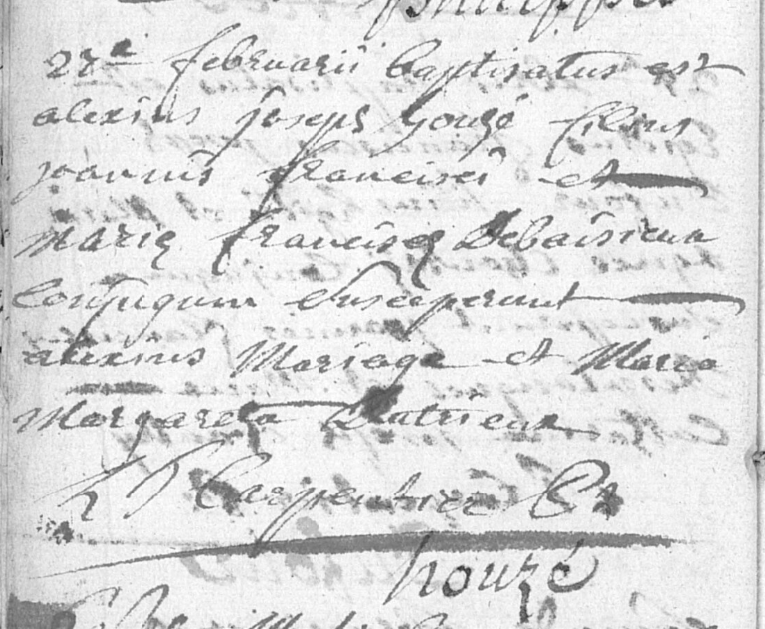 philippe
28a februarii baptisatus est
alexius joseph houzé filius
joannis francisci et
Mariæ franciscæ Debaisieux
Conjugum Susceperunt
alexius Mariage et Maria
Margareta Dutrieux
Carpentier
houzé